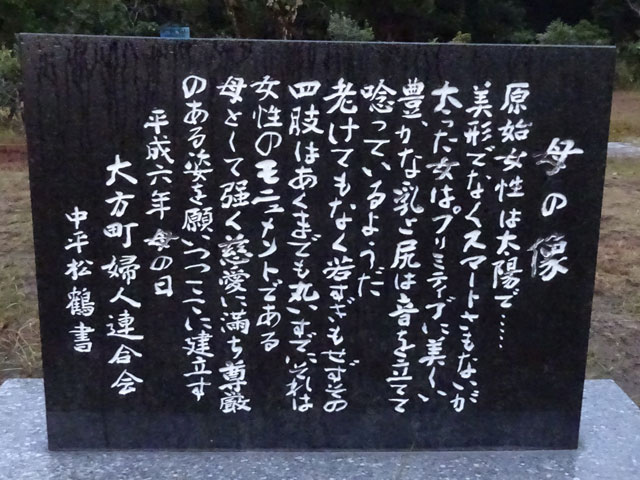 母の像
原始女性は太陽で……
美形でなくスマートさもないが
太った女はプリミティブに美しい
豊かな乳と尻は音を立てて
唸っているようだ
老けてもなく若すぎもせずその
四肢はあくまでも丸いすでにそれは
女性のモニュメントである
母として強く慈愛に満ち尊厳
のある姿を願いつつここに建立す
平成六年 母の日
大方町婦人連合会
中平松鶴書